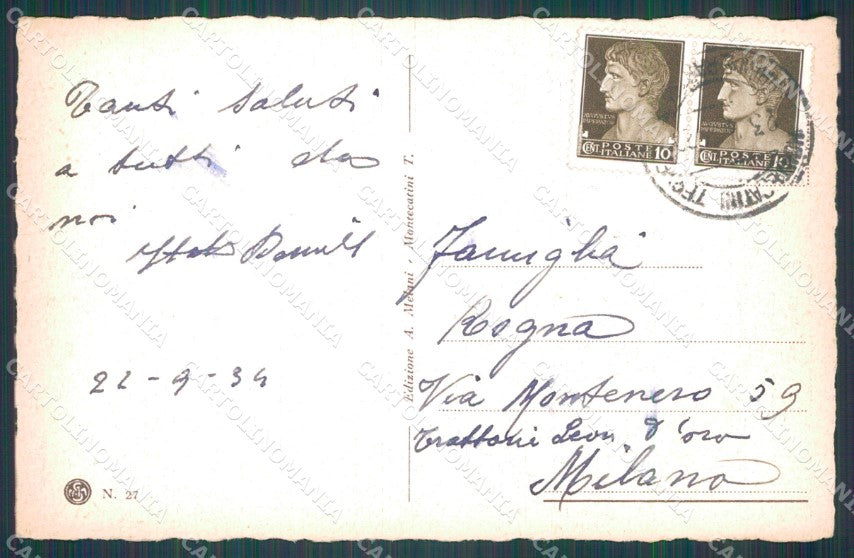 Tanti saluti
a tutti da
noi
22-9-34
N. 27
Edizione A. Melani - Montecatini T.
AUGVSTVS
CENT. POSTE ITALIANE 10
AUGVSTVS
CENT. POSTE ITALIANE 10
Famiglia
Rogna
Via Montenero 59
Trattoria Leon d'oro
Milano
CARTOLINOMANIA